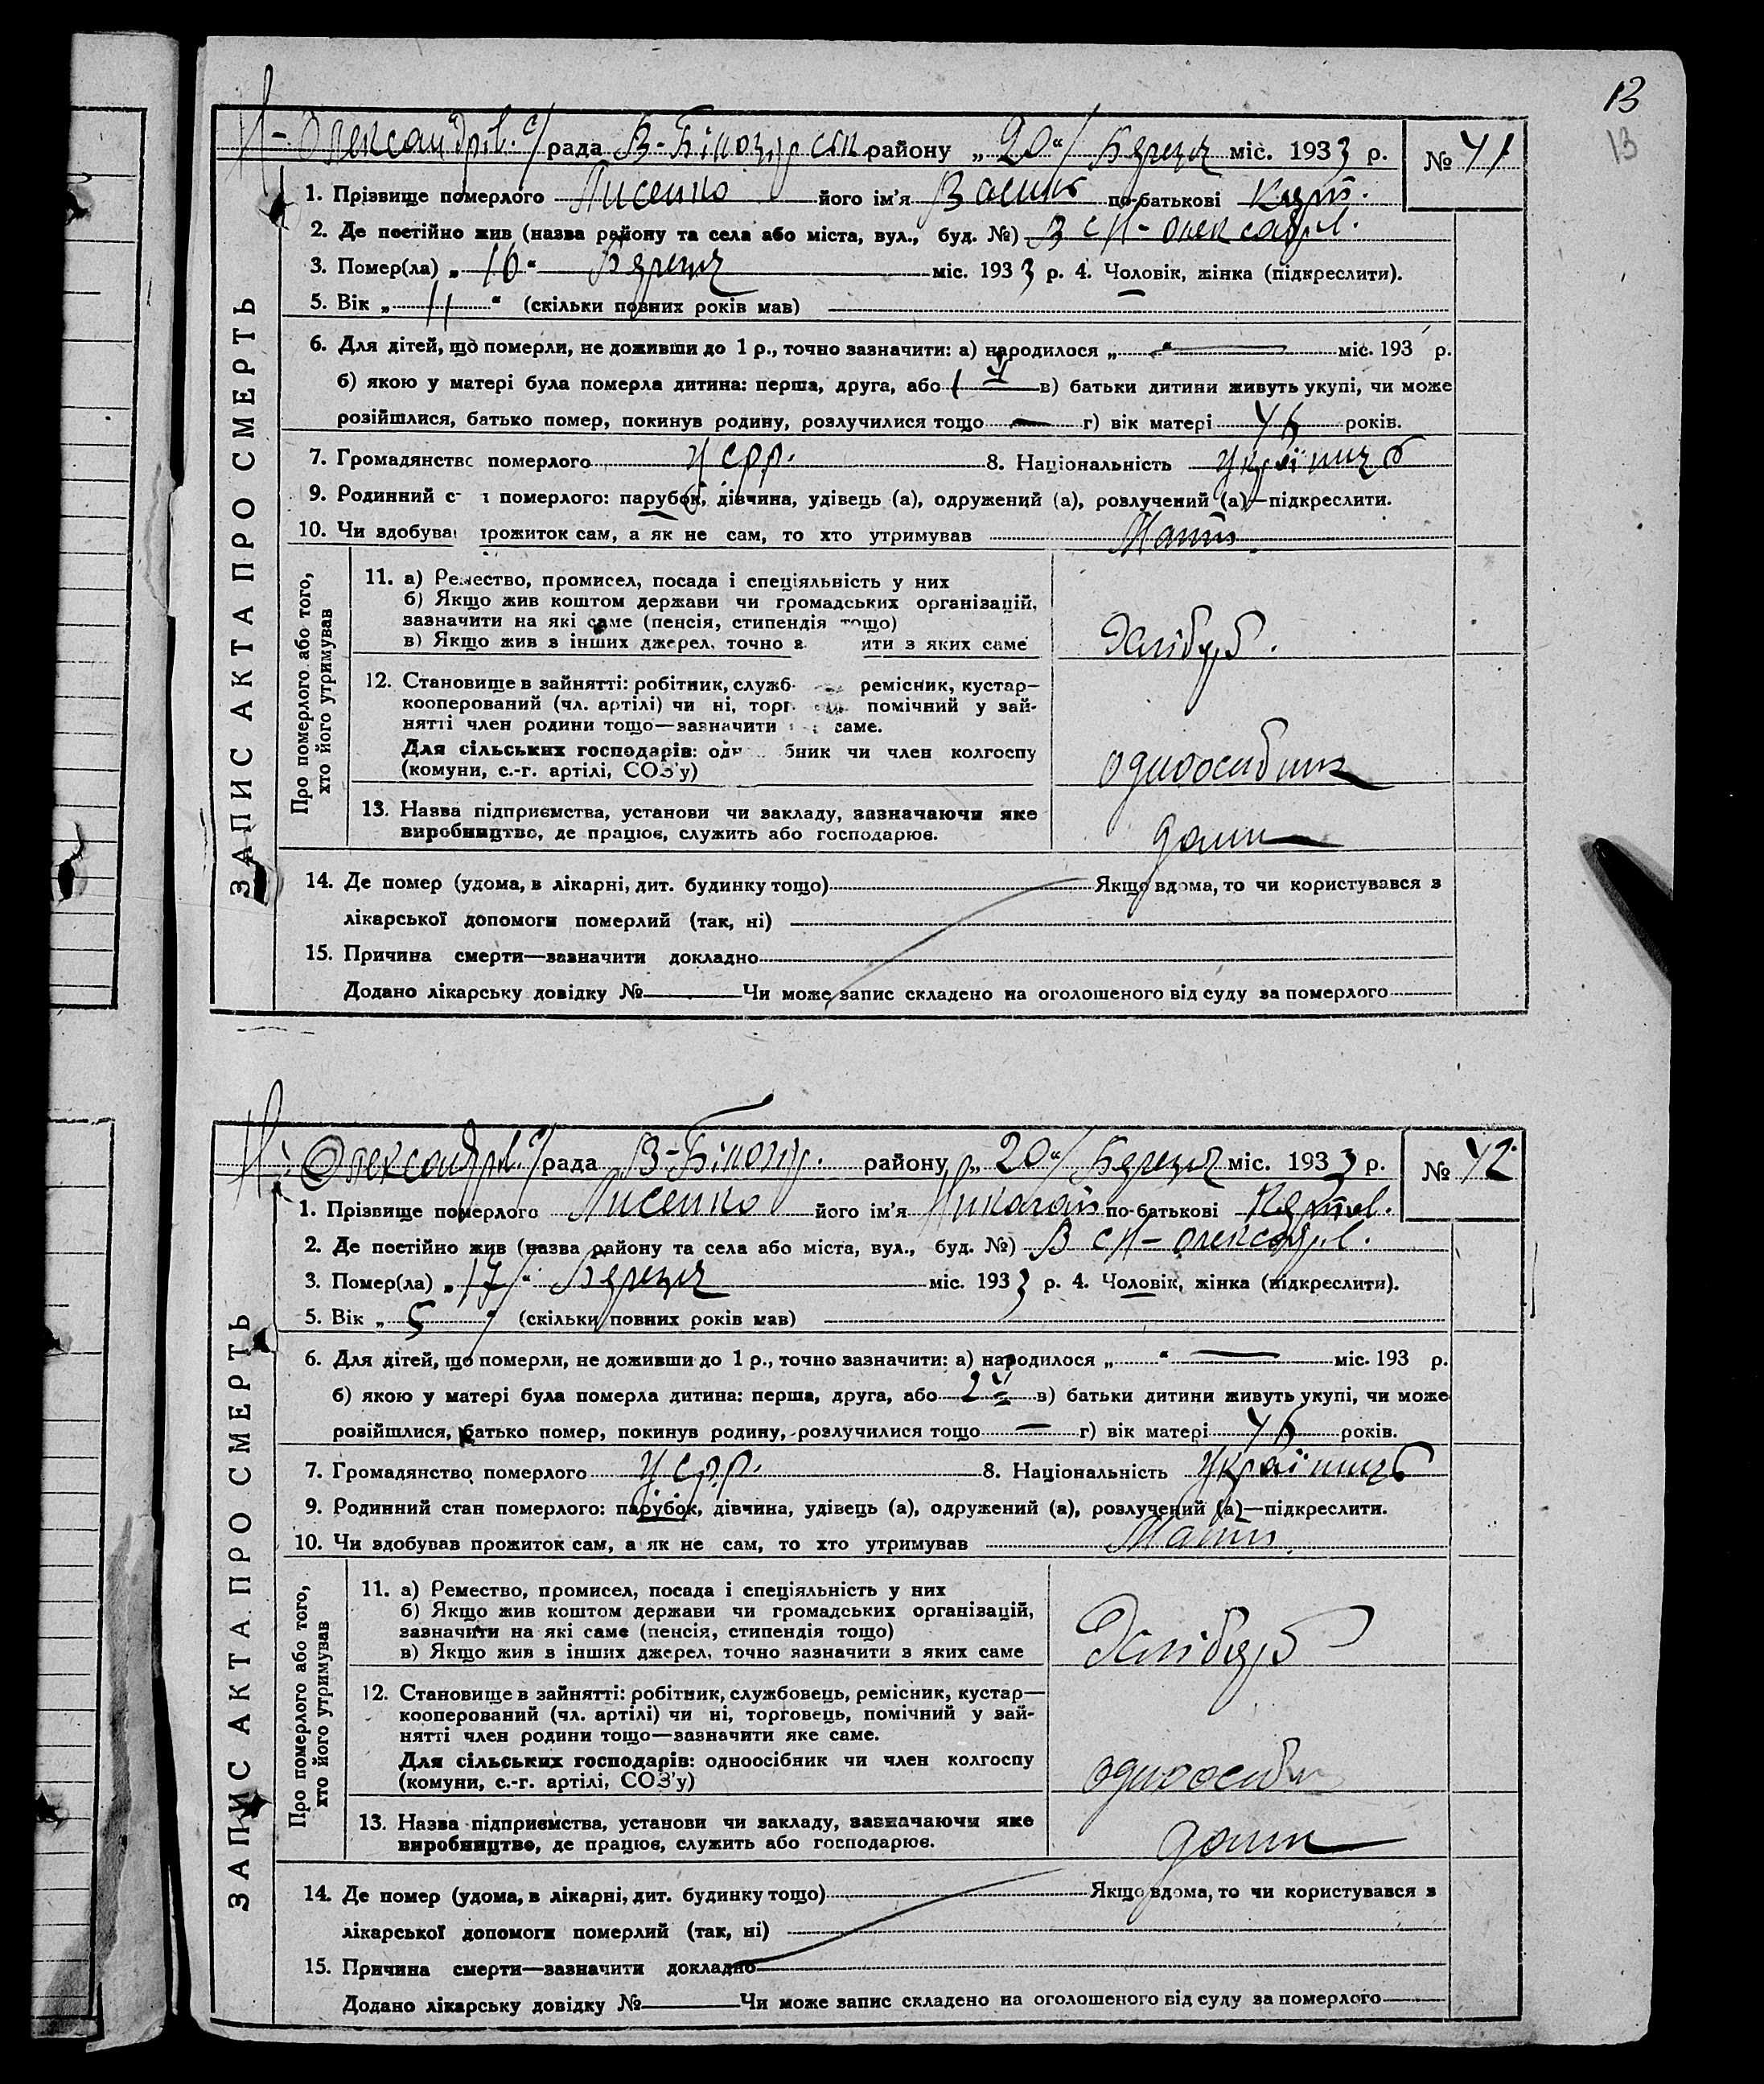 13
13
Н-Олександрів. с/рада В-Білозірськ району „20“ Березня міс. 1933 р. № 41
1. Прізвище померлого Лисенко його ім'я Василь по-батькові
2. Де постійно жив (назва району та села або міста, вул., буд. №) В с Н-Олександрів.
3. Помер(ла) „16“ Березня міс. 1933 р. 4. Чоловік, жінка (підкреслити).
5. Вік „11“ (скільки повних років мав)
6. Для дітей, що померли, не доживши до 1 р., точно зазначити: а) народилося „ “ — міс. 193 р.
б) якою у матері була померла дитина: перша, друга, або в) батьки дитини живуть укупі, чи може
розійшлися, батько помер, покинув родину, розлучилися тощо — г) вік матері років.
7. Громадянство померлого УСРР. 8. Національність Українець
9. Родинний с померлого: парубок, дівчина, удівець (а), одружений (а), розлучений (а)—підкреслити.
10. Чи здобував прожиток сам, а як не сам, то хто утримував Мати
ЗАПИС АКТА ПРО СМЕРТЬ
Про померлого або того,
хто його утримував
11. а) Ремество, промисел, посада і спеціяльність у них
б) Якщо жив коштом держави чи громадських організацій,
зазначити на які саме (пенсія, стипендія тощо)
в) Якщо жив з інших джерел, точно з ити з яких саме
Хлібор.
12. Становище в зайнятті: робітник, служб ремісник, кустар—
кооперований (чл. артілі) чи ні, торг помічний у зай-
нятті член родини тощо—зазначити саме.
Для сільських господарів: одн бник чи член колгоспу
(комуни, с.-г. артілі, СОЗ'у)
одноосібник
13. Назва підприємства, установи чи закладу, зазначаючи яке
виробництво, де працює, служить або господарює.
дома
14. Де помер (удома, в лікарні, дит. будинку тощо) Якщо вдома, то чи користувався з
лікарської допомоги померлий (так, ні)
15. Причина смерти—зазначити докладно
Додано лікарську довідку № Чи може запис складено на оголошеного від суду за померлого
Н. Олександрів. с/рада В-Білозір. району „20“ Березня міс. 1933 р. № 42
1. Прізвище померлого Лисенко його ім'я Николай по-батькові
2. Де постійно жив (назва району та села або міста, вул., буд. №) В с Н-Олександрів.
3. Помер(ла) „17“ Березня міс. 1933 р. 4. Чоловік, жінка (підкреслити).
5. Вік „5“ (скільки повних років мав)
6. Для дітей, що померли, не доживши до 1 р., точно зазначити: а) народилося „ “ — міс. 193 р.
б) якою у матері була померла дитина: перша, друга, або 2 в) батьки дитини живуть укупі, чи може
розійшлися, батько помер, покинув родину, розлучилися тощо — г) вік матері років.
7. Громадянство померлого УСРР. 8. Національність Українець
9. Родинний стан померлого: парубок, дівчина, удівець (а), одружений (а), розлучений (а)—підкреслити.
10. Чи здобував прожиток сам, а як не сам, то хто утримував Мати
ЗАПИС АКТА ПРО СМЕРТЬ
Про померлого або того,
хто його утримував
11. а) Ремество, промисел, посада і спеціяльність у них
б) Якщо жив коштом держави чи громадських організацій,
зазначити на які саме (пенсія, стипендія тощо)
в) Якщо жив з інших джерел, точно зазначити з яких саме
Хлібор
12. Становище в зайнятті: робітник, службовець, ремісник, кустар—
кооперований (чл. артілі) чи ні, торговець, помічний у зай-
нятті член родини тощо—зазначити яке саме.
Для сільських господарів: одноосібник чи член колгоспу
(комуни, с.-г. артілі, СОЗ'у)
одноосібн
13. Назва підприємства, установи чи закладу, зазначаючи яке
виробництво, де працює, служить або господарює.
дома
14. Де помер (удома, в лікарні, дит. будинку тощо) Якщо вдома, то чи користувався з
лікарської допомоги померлий (так, ні)
15. Причина смерти—зазначити докладно
Додано лікарську довідку № Чи може запис складено на оголошеного від суду за померлого